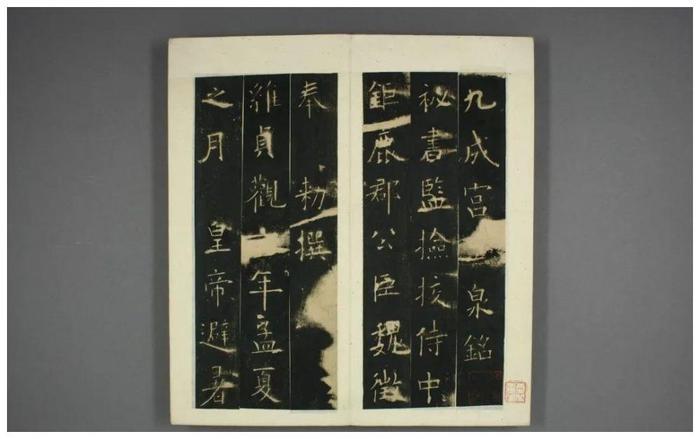 九成宮泉銘
秘書監撿挍侍中
鉅鹿郡公臣魏徵
奉勑撰
維貞觀年孟夏
之月皇帝避暑